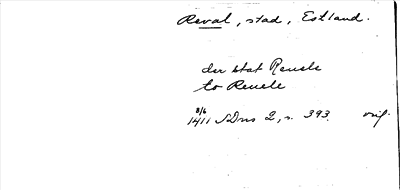 Reval, stad, Estland.
der stat Reuele
to Reuele
8/6
1411 SDns 2, s. 393. orig.